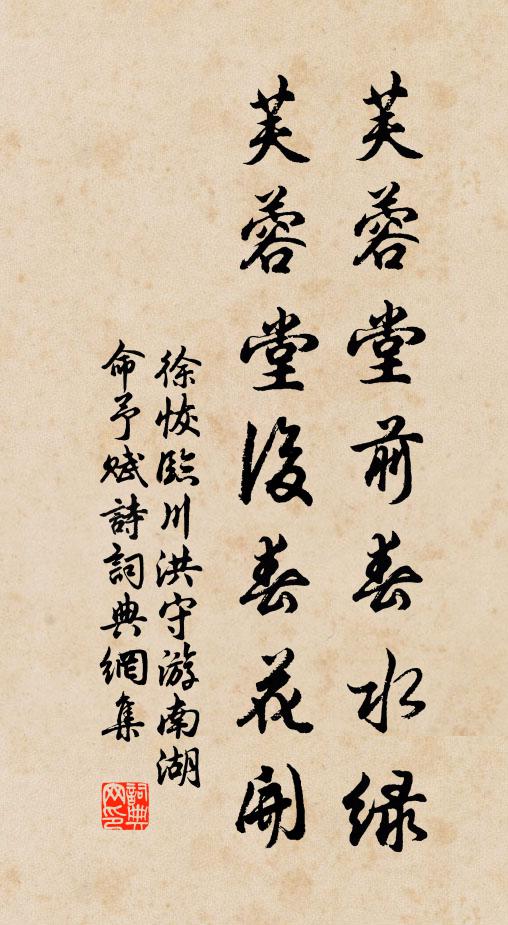 芙蓉堂前春水绿
芙蓉堂後春花開
徐恢臨川洪守游南湖
命予賦詩詞典網集
詞典
网印